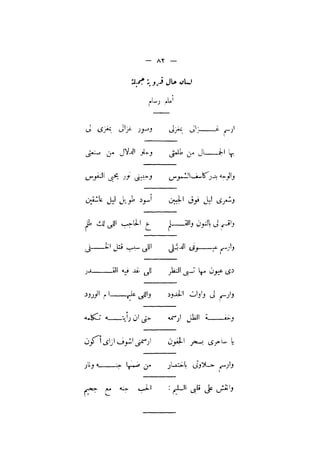 — ٨٢ —
لسان حال
أمام رسام
ارسم غـــزالى بمغزلى وصور غزالى بمغزى لى
بها الجمـــال من طلعتى وحلو الدلال من صنعتى
والوجه بدر كاسف الشموس وجبينى نور يحيى النفوس
وشعرى ليل فوق الجبين أسود طويل ليل عاشقين
وارسم لى بالنون والقـــلم ع الحاجب اللى لك ظلم
وارسم عيـــونى الدبلى اللى سبب قتل الخـــلى
دى عيون مها تسبى النظر اللى غد فيه القـــدر
وارسم لى واوات الخدود واللى عليهـــا م الورود
وخفـــة الظل ارسمه حتى ان رأيتـــه تـكلمه
يا ساحرى بسحر الجفون ارسمنى اشوف ازاى أكون
وارسم حـــلاوتى باختصار من ضمنها جنـــه ونار
وانقش على قلبى السليم : الحب جنه مع جحيم